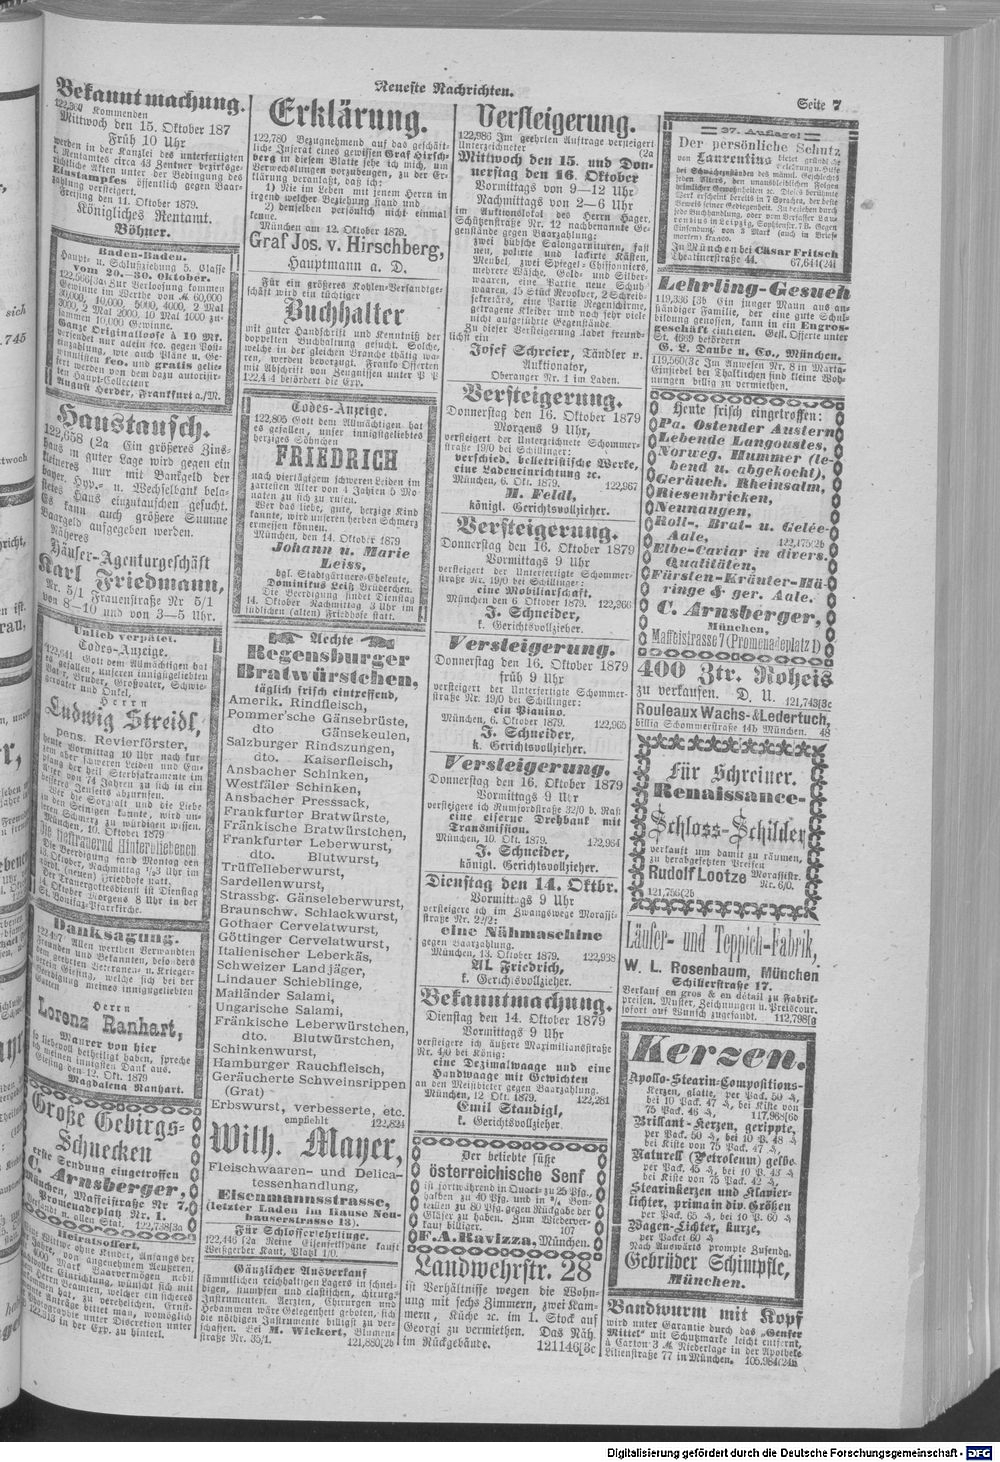 Neueste Nachrichten.
Seite 7
Bekanntmachung.
122,360 Kommenden
Mittwoch den 15. Oktober 187
Früh 10 Uhr
werden in der Kanzlei des unterfertigten
k. Rentamtes circa 43 Zentner bezirksge-
richtliche Akten unter der Bedingung des
Einstampfes öffentlich gegen Baar-
zahlung versteigert.
Freising den 11. Oktober 1879.
Königliches Rentamt.
Böhner.
Baden-Baden.
Haupt- u. Schlußziehung 5. Classe
vom 20.-30. Oktober.
122,566[3a Zur Verloosung kommen
Gewinne im Werthe von M 60,000
30,000, 10,000, 5000, 4000, 2 Mal
3000, 2 Mal 2000, 10 Mal 1000 zu-
sammen 10,000 Gewinne.
Ganze Originalloose à 10 Mk.
versendet nur allein fco. gegen Post-
einzahlung, wie auch Pläne u. Ge-
winnlisten fco. und gratis gelie-
fert werden von dem dazu autorisir-
ten Haupt-Collecteur
August Herder, Frankfurt a./M.
Haustausch.
122,658 (2a Ein größeres Zins-
haus in guter Lage wird gegen ein
kleineres nur mit Bankgeld der
bayer. Hyp.- u. Wechselbank bela-
stetes Haus einzutauschen gesucht.
Es kann auch größere Summe
Baargeld aufgegeben werden.
Näheres
Häuser-Agenturgeschäft
Karl Friedmann,
Nr. 5/1 Frauenstraße Nr 5/1
von 8—10 und von 3—5 Uhr.
Unlieb verspätet.
Todes-Anzeige.
122,641 Gott dem Allmächtigen hat
es gefallen, unser innigstgeliebten
Vater, Bruder, Großvater, Schwie-
gervater und Onkel,
Herrn
Ludwig Streidl,
pens. Revierförster,
heute Vormittag 10 Uhr nach kur-
zem aber schweren Leiden und Em-
pfang der heil Sterbsakramente im
Alter von 74 Jahren zu sich in ein
besseres Jenseits abzurufen.
Wer die Sorgfalt und die Liebe
zu den Seinigen kannte, wird un-
seren Schmerz zu würdigen wissen.
München, 10. Oktober 1879
Die tieftrauernd Hinterbliebenen
Die Beerdigung fand Montag den
13. Oktober, Nachmittag 1/23 Uhr im
nördl. (neuen) Friedhofe statt,
der Trauergottesdienst ist Dienstag
14. Oktober Morgens 8 Uhr in der
St. Bonifaz-Pfarrkirche.
Danksagung.
122,497 Allen werthen Verwandten
Freunden und Bekannten, besonders
dem geehrten Veteranen- u. Krieger-
Verein Giesing, welche sich bei der
Beerdigung meines innigstgeliebten
Gatten
Herrn
Lorenz Ranhart,
Maurer von hier
so liebevoll betheiligt haben, spreche
ich meinen innigsten Dank aus.
Giesing den 12. Okt. 1879
Magdalena Ranhart.
Große Gebirgs-
Schnecken
erste Sendung eingetroffen
C. Arnsberger,
München, Maffeistraße Nr 7,
Promenadeplatz Nr. 1.
122,738[3a
Heiratsoffert.
Wittwe ohne Kinder, Anfangs der
von angenehmem Aeußeren,
Mark Baarvermögen nebst
Einrichtung, wünscht sich mit
Herrn Beamten, welcher ein sicheres
hat, zu verehelichen. Ernst-
Anträge bittet man, womöglich
Photographie unter Discretion unter
in der Exp. zu hinterl.
Erklärung.
122,780 Bezugnehmend auf das geschäft-
liche Inserat eines gewissen Graf Hirsch-
berg in diesem Blatte sehe ich mich, um
Verwechslungen vorzubeugen, zu der Er-
klärung veranlaßt, daß ich:
1) Nie im Leben mit jenem Herrn in
irgend welcher Beziehung stand und
2) denselben persönlich nicht einmal
kenne.
München am 12. Oktober 1879.
Graf Jos. v. Hirschberg,
Hauptmann a. D.
Für ein größeres Kohlen-Versandtge-
schäft wird ein tüchtiger
Buchhalter
mit guter Handschrift und Kenntniß der
doppelten Buchhaltung gesucht. Solche,
welche in der gleichen Branche thätig wa-
ren, werden bevorzugt. Franko Offerten
mit Abschrift von Zeugnissen unter P P
122,414 befördert die Exp.
Todes-Anzeige.
122,805 Gott dem Allmächtigen hat
es gefallen, unser innigstgeliebtes
herziges Söhnchen
FRIEDRICH
nach viertägigem schweren Leiden im
zartesten Alter von 4 Jahren 5 Mo-
naten zu sich zu rufen.
Wer das liebe, gute, herzige Kind
kannte, wird unseren herben Schmerz
ermessen können.
München, den 14. Oktober 1879
Johann u. Marie
Leiss,
bgl. Stadtgärtners-Eheleute,
Dominikus Leiß Brüderchen.
Die Beerdigung findet Dienstag
14. Oktober Nachmittag 3 Uhr im
südlichen (alten) Friedhofe statt.
Aechte
Regensburger
Bratwürstchen,
täglich frisch eintreffend,
Amerik. Rindfleisch,
Pommer'sche Gänsebrüste,
dto Gänsekeulen,
Salzburger Rindszungen,
dto. Kaiserfleisch,
Ansbacher Schinken,
Westfäler Schinken,
Ansbacher Presssack,
Frankfurter Bratwürste,
Fränkische Bratwürstchen,
Frankfurter Leberwurst,
dto. Blutwurst,
Trüffelleberwurst,
Sardellenwurst,
Strassbg. Gänseleberwurst,
Braunschw. Schlackwurst,
Gothaer Cervelatwurst,
Göttinger Cervelatwurst,
Italienischer Leberkäs,
Schweizer Landjäger,
Lindauer Schieblinge,
Mailänder Salami,
Ungarische Salami,
Fränkische Leberwürstchen,
dto. Blutwürstchen,
Schinkenwurst,
Hamburger Rauchfleisch,
Geräucherte Schweinsrippen
(Grat)
Erbswurst, verbesserte, etc.
empfiehlt 122,824
Wilh. Mayer,
Fleischwaaren- und Delica-
tessenhandlung,
Eisenmannsstrasse,
(letzter Laden im Hause Neu-
hauserstrasse 13).
Für Schlosserlehrlinge.
122,446 [2a Reine Eisenfeilspäne kauft
Weißgerber Kaut, Platzl 1/0.
Gänzlicher Ausverkauf
sämmtlichen reichhaltigen Lagers in schnei-
digen, stumpfen und elastischen, chirurg.
Instrumenten. Aerzten, Chirurgen und
Hebammen wäre Gelegenheit geboten, sich
die nöthigen Instrumente billigst zu ver-
schaffen. Bei M. Wickert, Blumen-
straße Nr. 35/1. 121,880[2b
Versteigerung.
122,986 Im geehrten Auftrage versteigert
Unterzeichneter (2a
Mittwoch den 15. und Don-
nerstag den 16. Oktober
Vormittags von 9—12 Uhr
Nachmittags von 2—6 Uhr
im Auktionslokal des Herrn Hager,
Schützenstraße Nr. 12 nachbenannte Ge-
genstände gegen Baarzahlung:
zwei hübsche Salongarnituren, fast
neu, polirte und lackirte Kästen,
Meubel, zwei Spiegel-Chiffonniers,
mehrere Wäsche, Gold- und Silber-
waaren, eine Partie neue Schuh-
waaren, 15 Stück Revolver, 2 Schreib-
sekretärs, eine Partie Regenschirme,
getragene Kleider und noch sehr viele
nicht aufgeführte Gegenstände.
Zu dieser Versteigerung ladet freund-
lichst ein
Josef Schreier, Tändler u.
Auktionator,
Oberanger Nr. 1 im Laden.
Versteigerung.
Donnerstag den 16. Oktober 1879
Morgens 9 Uhr,
versteigert der Unterzeichnete Schommer-
straße 19/0 bei Schillinger:
verschied. belletristische Werke,
eine Ladeneinrichtung ec.
München, 6. Okt. 1879. 122,967
M. Feldl,
königl. Gerichtsvollzieher.
Versteigerung.
Donnerstag den 16. Oktober 1879
Vormittags 9 Uhr
versteigert der Unterfertigte Schommer-
straße Nr. 19/0 bei Schillinger:
eine Mobiliarschaft.
München den 6 Oktober 1879. 122,966
J. Schneider,
k. Gerichtsvollzieher.
Versteigerung.
Donnerstag den 16. Oktober 1879
früh 9 Uhr
versteigert der Unterfertigte Schommer-
straße Nr. 19/0 bei Schillinger:
ein Pianino.
München, 6. Oktober 1879. 122,965
J. Schneider,
k. Gerichtsvollzieher.
Versteigerung.
Donnerstag den 16. Oktober 1879
Vormittags 9 Uhr
versteigere ich Rumfordstraße 32/0 b. Rast
eine eiserne Drehbank mit
Transmission.
München, 10. Okt. 1879. 122,964
J. Schneider,
königl. Gerichtsvollzieher.
Dienstag den 14. Oktbr.
Vormittags 9 Uhr
versteigere ich im Zwangswege Morassi-
straße Nr. 22/2:
eine Nähmaschine
gegen Baarzahlung.
München, 13. Oktober 1879. 122,938
Al. Friedrich,
k. Gerichtsvollzieher.
Bekanntmachung.
Dienstag den 14. Oktober 1879
Vormittags 9 Uhr
versteigere ich äußere Maximiliansstraße
Nr. 4/0 bei König:
eine Dezimalwaage und eine
Handwaage mit Gewichten
an den Meistbieter gegen Baarzahlung.
München, 12 Okt. 1879. 122,281
Emil Staudigl,
k. Gerichtsvollzieher.
Der beliebte süße
österreichische Senf
ist fortwährend in Quart- zu 25 Pfg.,
halben zu 40 Pfg. und in 3/4 Bou-
teillen zu 80 Pfg. gegen Rückgabe der
Gläser zu haben. Zum Wiederver-
kauf billiger. 107
F. A. Ravizza, München.
Landwehrstr. 28
ist Verhältnisse wegen die Wohn-
ung mit sechs Zimmern, zwei Kam-
mern, Küche ec. im 1. Stock auf
Georgi zu vermiethen. Das Näh.
im Rückgebäude. 121146[3c
37. Auflage!
Der persönliche Schutz
von Laurentius
bei Schwächezuständen des männl. Geschlechts
jeden Alters, den unausbleiblichen Folgen
heimlicher Gewohnheiten ec. Dieses berühmte
Werk erscheint bereits in 7 Sprachen, der beste
Beweis seiner Gediegenheit. Zu beziehen durch
jede Buchhandlung, oder vom Verfasser Lau
rentius in Leipzig, Sophienstr. 7 B. Gegen
Einsendung von 3 Mark (auch in Brief-
marken) franco.
In München bei Cäsar Fritsch
Theatinerstraße 44. 67,644(24l
Lehrling-Gesuch
119,336 [3b Ein junger Mann aus an-
ständiger Familie, der eine gute Schul-
bildung genossen, kann in ein Engros-
geschäft eintreten. Gefl. Offerte unter
St. 4669 befördert
G. L. Daube u. Co., München.
119,560[3c Im Anwesen Nr. 8 in Marta-
Einsiedel bei Thalkirchen sind kleine Woh-
nungen billig zu vermiethen.
Heute frisch eingetroffen:
Pa. Ostender Austern
Lebende Langoustes,
Norweg. Hummer (le-
bend u. abgekocht),
Geräuch. Rheinsalm,
Riesenbricken,
Neunaugen,
Roll-, Brat- u. Gelée-
Aale, 122,175(2b
Elbe-Caviar in divers.
Qualitäten,
Fürsten-Kräuter-Hä-
ringe & ger. Aale.
C. Arnsberger,
München,
Maffeistrasse 7 (Promenadeplatz 1)
400 Ztr. Roheis
zu verkaufen. D. U. 121,743[3c
Rouleaux Wachs- & Ledertuch,
billig Schommerstraße 14b München. 48
Für Schreiner.
Renaissance-
Schloss-Schilder
verkauft um damit zu räumen,
zu herabgesetzten Preisen
Rudolf Lootze Morassistr.
Nr. 6/0.
121,756(2b
Läufer- und Teppich-Fabrik,
W. L. Rosenbaum, München
Schillerstraße 17.
Verkauf en gros & en détail zu Fabrik-
preisen. Muster, Zeichnungen u. Preiscour.
sofort auf Wunsch zugesandt. 112,798[g
Kerzen.
Apollo-Stearin-Compositions-
Kerzen, glatte, per Pack. 50 ₰,
bei 10 Pack. 47 ₰, bei Kiste von
75 Pack. 46 ₰, 117,968[6b
Brillant-Kerzen, gerippte,
per Pack. 50 ₰, bei 10 P. 48 ₰
bei Kiste von 75 Pack. 47 ₰,
Naturell (Petroleum) gelbe
per Pack. 45 ₰, bei 10 P. 43 ₰
bei Kiste von 75 Pack. 42 ₰,
Stearinkerzen und Klavier-
lichter, prima in div. Größen
per Pack. 65 ₰, bei 10 P. 60 ₰
Wagen-Lichter, kurze,
per Packet 60 ₰
Nach Auswärts prompte Zusendg.
Gebrüder Schimpfle,
München.
Bandwurm mit Kopf
wird unter Garantie durch das „Genfer
Mittel" mit Schutzmarke leicht entfernt,
à Carton 3 M Niederlage in der Apotheke
Lilienstraße 77 in München. 105,984(24h
Digitalisierung gefördert durch die Deutsche Forschungsgemeinschaft - DFG